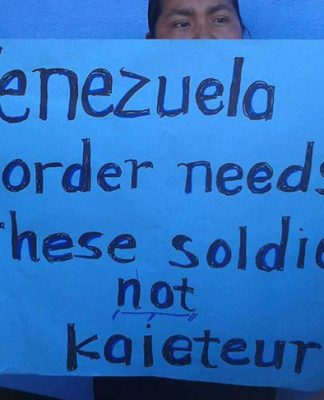 Venezuela
order needs
these soldie
not
kaieteur